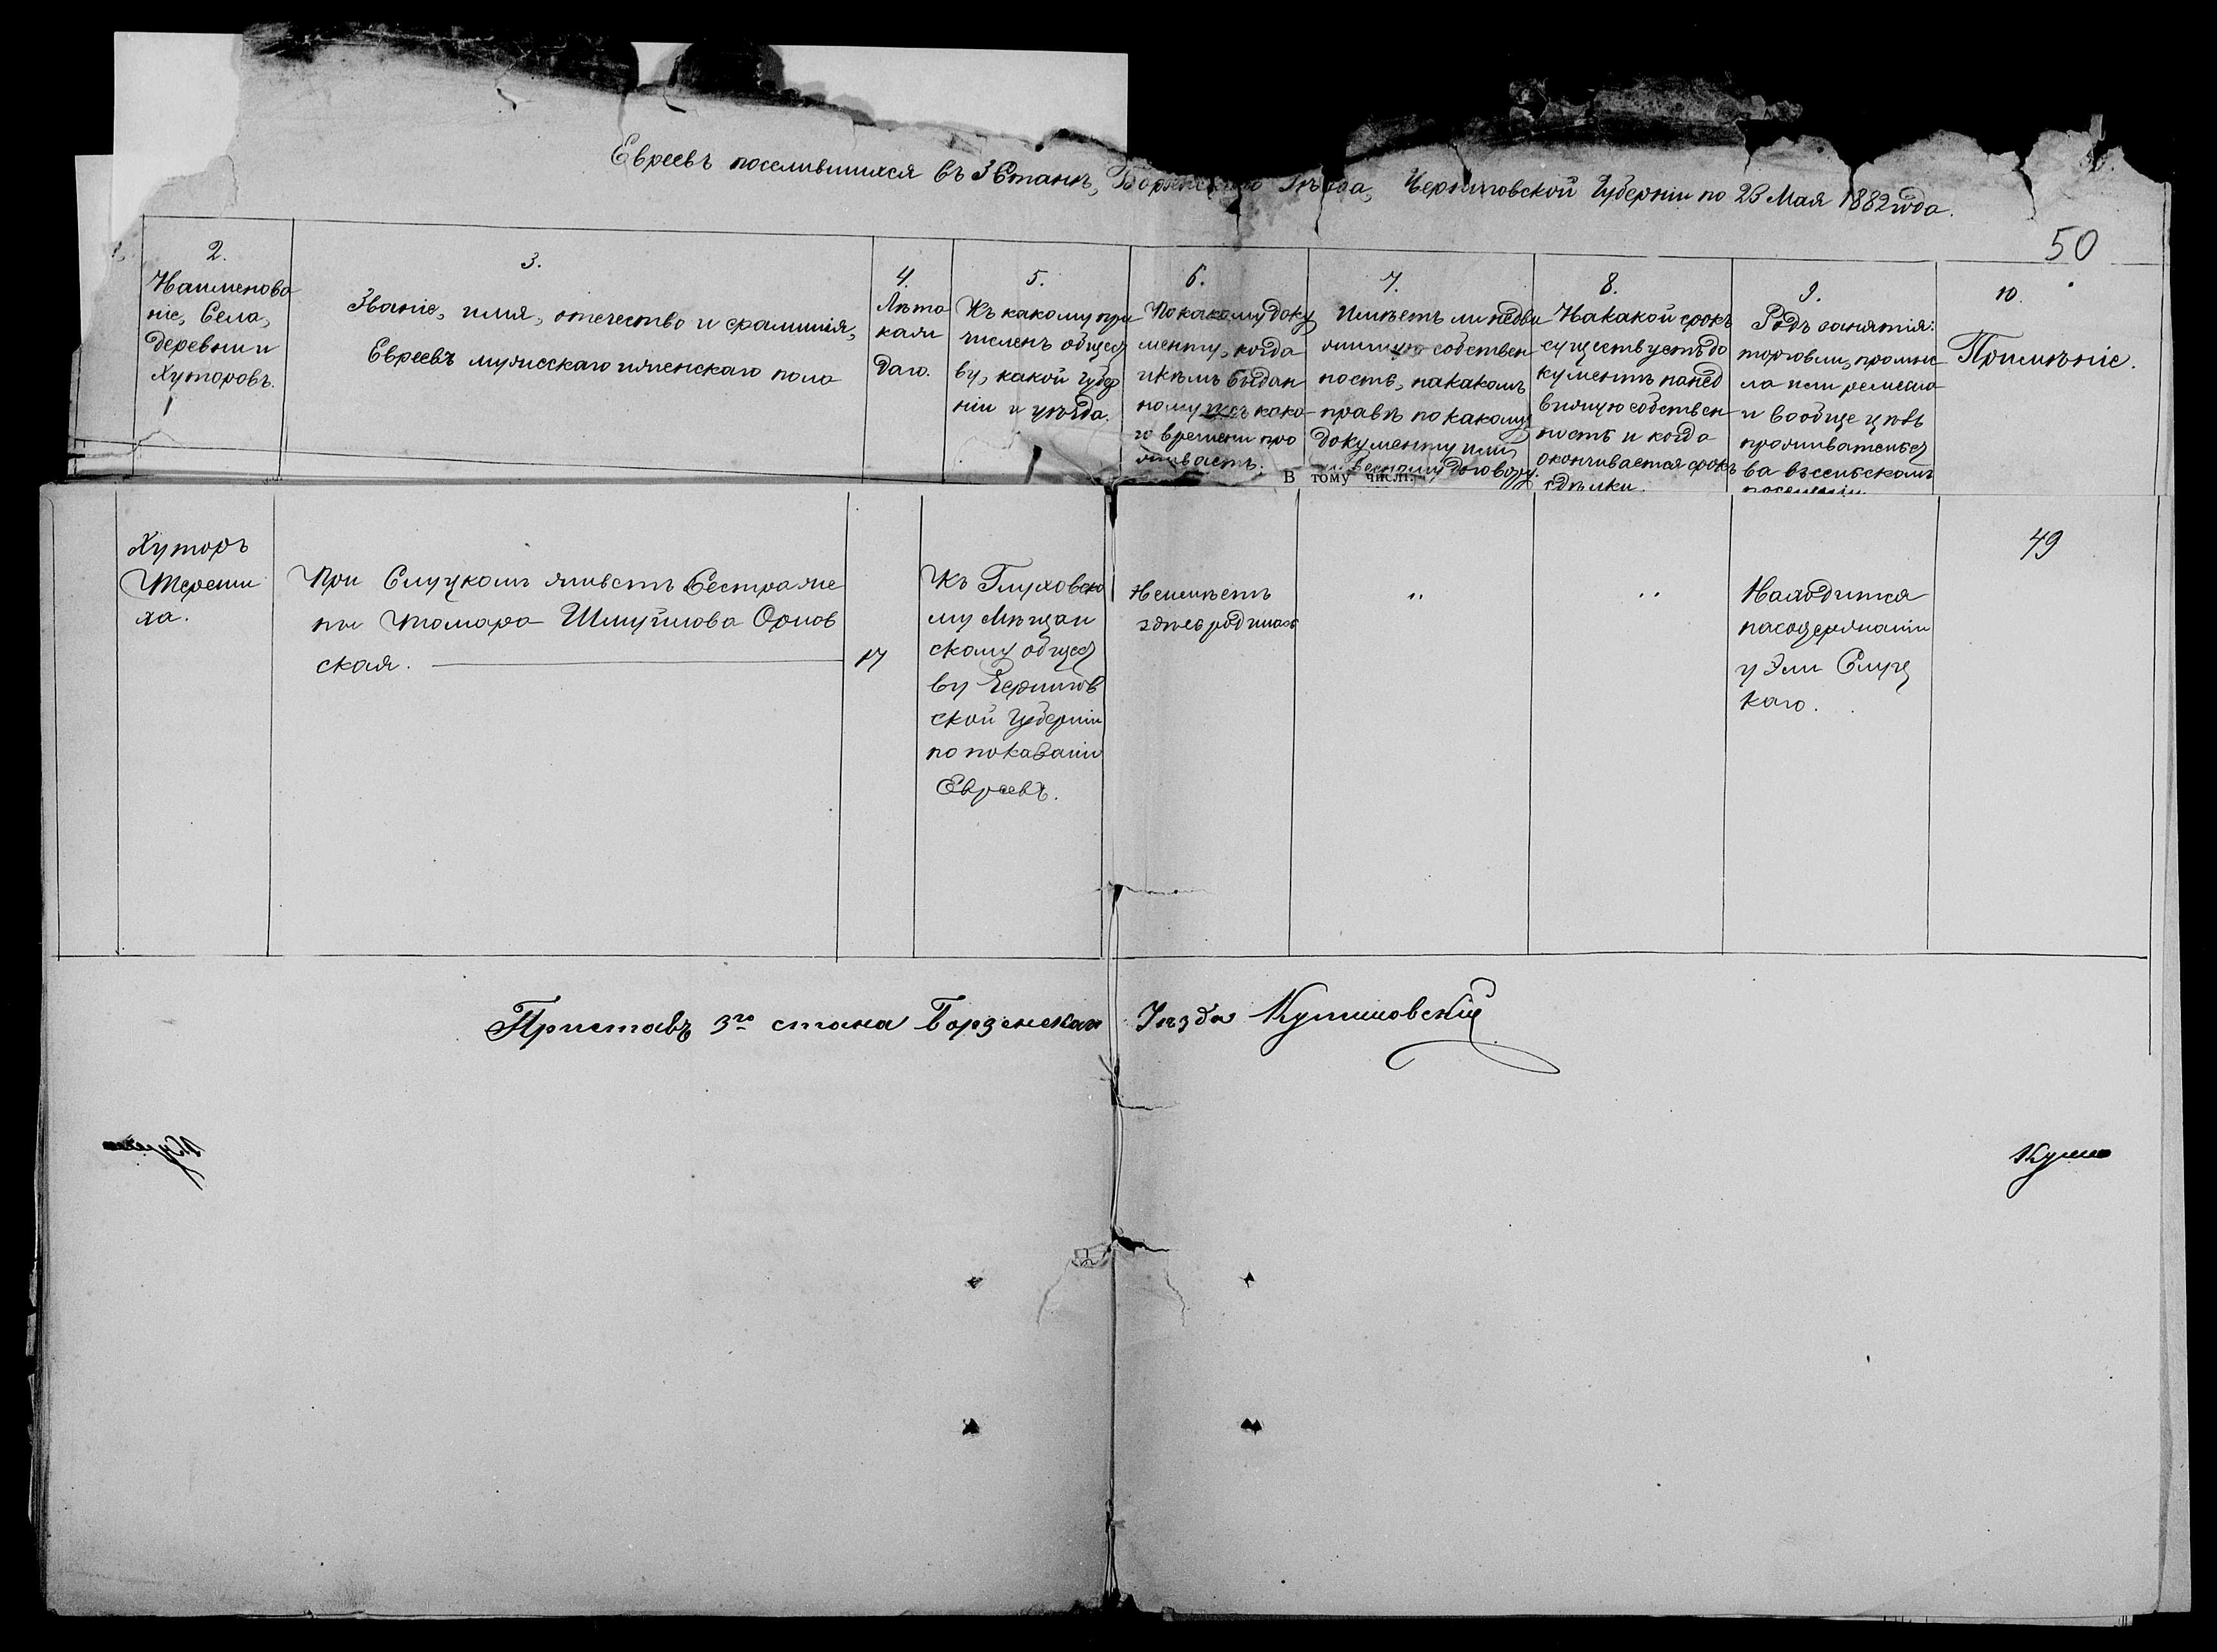 Евреевъ поселившихся въ 3 Станѣ, Борзенскаго Уѣзда, Черниговской Губерніи по 23 Мая 1882 года.
50
2.
Наименова
ніе, Села,
деревни и
Хуторовъ.
3.
Званіе, имя, отечество и фамилія,
Евреевъ мужескаго и женскаго пола
4.
Лѣта
кажи
даго.
5.
Къ какому при
численъ общест
ву, какой Губер
ніи и уѣзда.
6.
По какому доку
менту, когда
и кѣмъ выдан
ному и съ како
го времени про
живаетъ.
7.
Имѣетъ ли недви
жимую собствен
ность, на какомъ
правѣ по какому
документу или
словесному договору.
8.
На какой срокъ
существуетъ до
кументъ на нед
вижую собствен
ность и когда
окончивается срокъ
сдѣлки.
9.
Родъ занятія:
торговли, промыс
ла или ремесла
и вообще цѣль
проживательст
ва въ сельскомъ
поселеніи
10.
Примѣніе.
В тому числі:
49
Хуторъ
Тереши
ха.
При Слуцкомъ живетъ Сестра же
ны Тамара Шмуйлова Орлов
ская.
17
Къ Глуховско
му Мѣщан
скому общест
ву Чернигов
ской Губерніи
по показанію
Евреевъ.
Неимѣетъ
здѣсь родилась
"
"
Находится
на содержаніи
у Эли Слуц
каго.
Приставъ 3го стана Борзенскаго Уѣзда